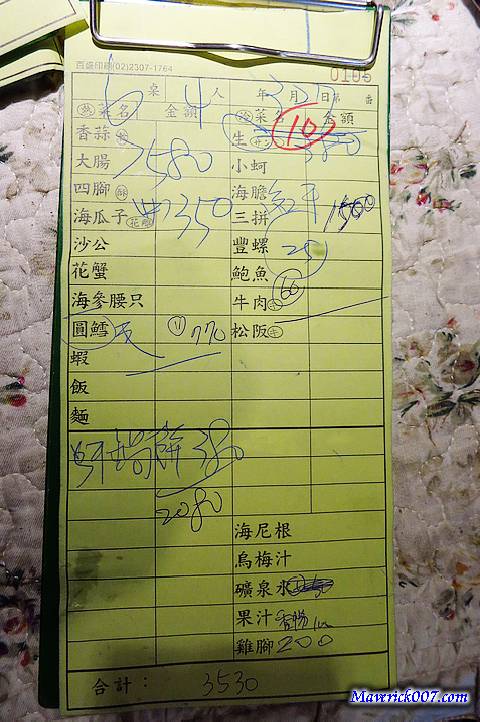 百盛印刷(02)2307-1764
0105
6 桌 4 人 年 3 月 日第 番
熱菜名 金額 冷菜名 金額
香蒜 生 10
大腸 580 小蚵
四腳 海膽
海瓜子 花蟹 350 三拼 1500
沙公 豐螺 25
花蟹 鮑魚
海參腰只 牛肉 66
圓鱈 11 770 松阪
蝦
飯
麵
380
2080
海尼根
烏梅汁
礦泉水
果汁
雞腳 200
合計： 3530
Maverick007.com